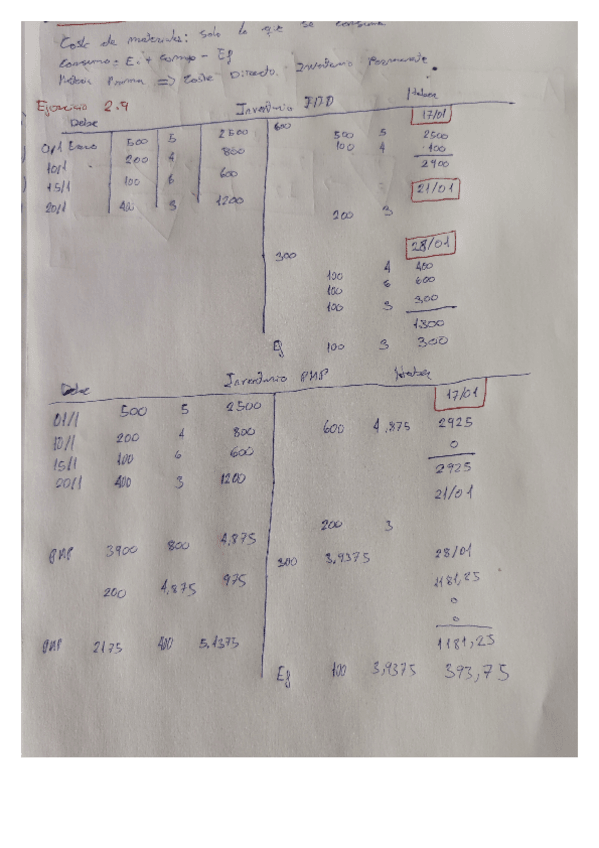 Coste de materiales: solo lo que se consume
Consumo = E. + Comp - Ef
Materia Prima => Coste Directo. Inventario Permanente.
Ejercicio 2.9
Inventario FIFO
Debe Haber
600 17/01
01/1 Enero 500 5 2500 500 5 2500
10/1 200 4 800 100 4 400
2900
15/1 100 6 600 21/01
20/1 400 3 1200 200 3
300 28/01
100 4 400
100 6 600
100 3 300
1300
Ef 100 3 300
Inventario PMP
Debe Haber
17/01
01/1 500 5 2500
10/1 200 4 800 600 4,875 2925
15/1 100 6 600 0
20/1 400 3 1200 2925
21/01
200 3
PMP 3900 800 4,875
300 3,9375 28/01
200 4,875 975 1181,25
0
0
PMP 2175 400 5,4375 1181,25
Ef 100 3,9375 393,75